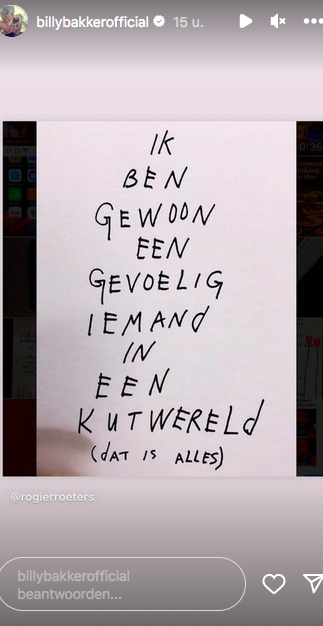 billybakkerofficial 15 u.
IK
BEN
GEWOON
EEN
GEVOELIG
IEMANd
IN
EEN
KUTWERELd
(dAT IS ALLES)
@rogierroeters
billybakkerofficial
beantwoorden...